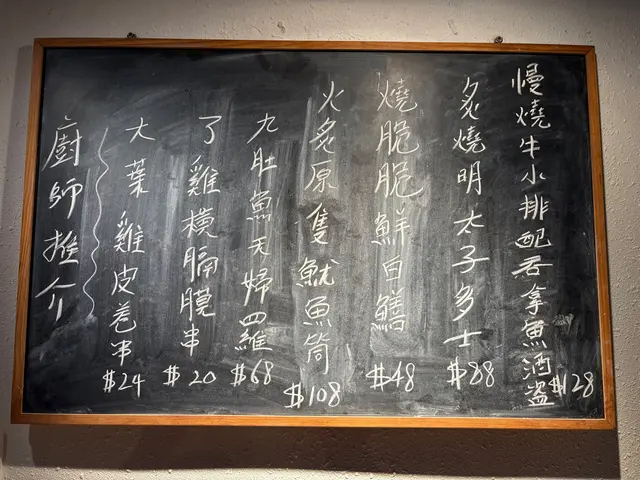 廚師推介
大葉雞皮卷串 $24
了雞橫膈膜串 $20
九肚魚天婦羅 $68
火炙原隻魷魚筒 $108
燒脆脆鮮白鱔 $48
炙燒明太子多士 $88
慢燒牛小排配吞拿魚酒盗 $128